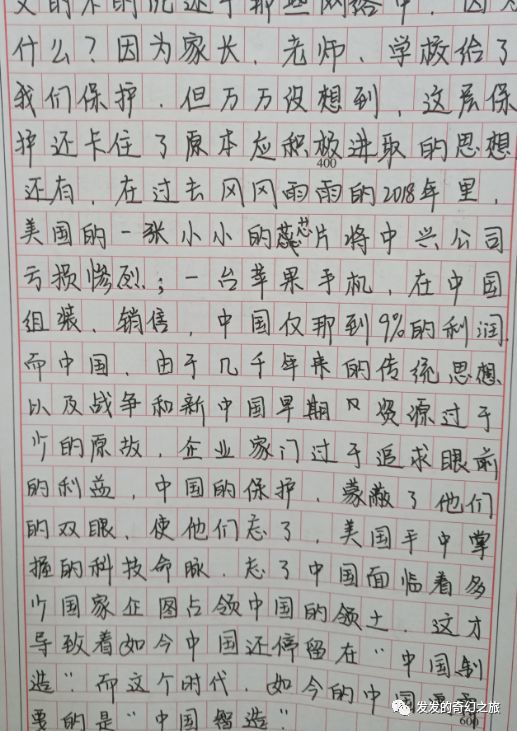 什么？因为家长、老师、学校给了
我们保护．但万万没想到，这层保
护还卡住了原本应积极进取的思想
400
还有，在过去风风雨雨的2018年里，
美国的一张小小的芯片将中兴公司
亏损惨烈；一台苹果手机，在中国
组装、销售，中国仅那到9%的利润．
而中国，由于几千年来的传统思想
以及战争和新中国早期 资源过于
少的原故，企业家门过于追求眼前
的利益，中国的保护，蒙蔽了他们
的双眼，使他们忘了，美国手中掌
握的科技命脉，忘了中国面临着多
少国家企图占领中国的领土．这才
导致着如今中国还停留在“中国制
造”而这个时代，如今的中国
要的是“中国智造”
600
发发的奇幻之旅